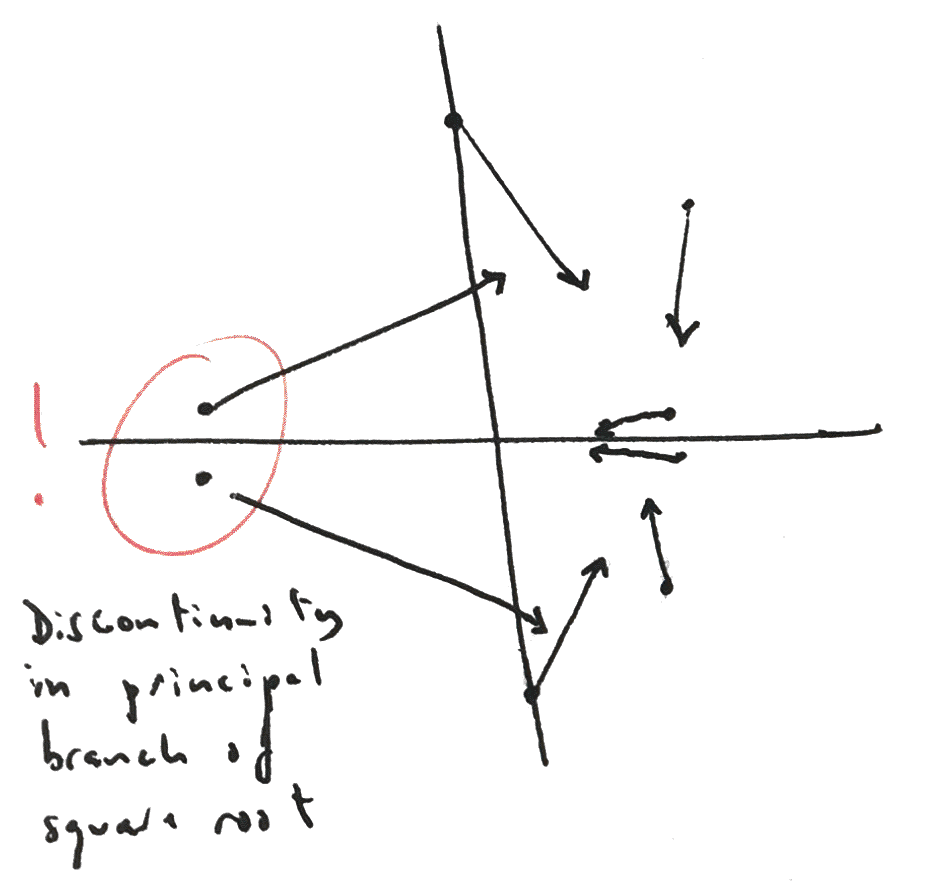 !
Discontinuity
in principal
branch of
square root